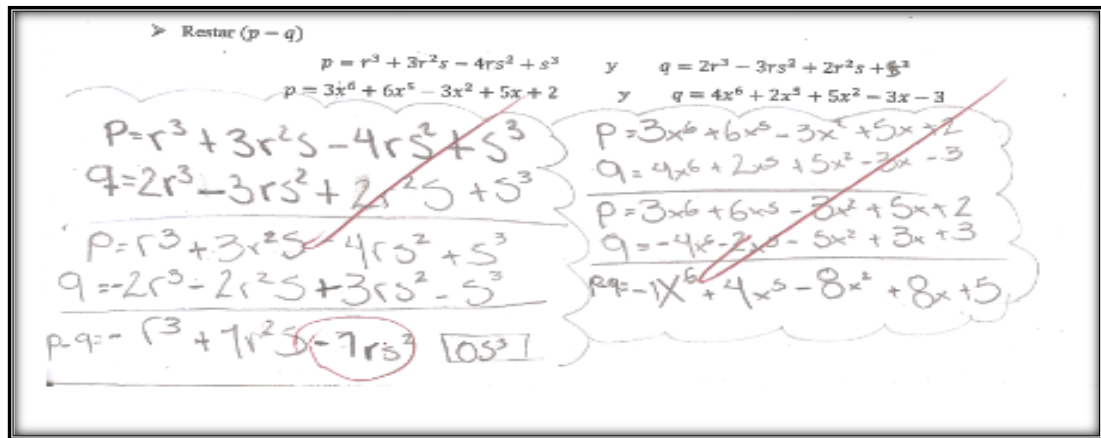 ➢ Restar (p − q)
p = r³ + 3r²s − 4rs² + s³ y q = 2r³ − 3rs² + 2r²s + s³
p = 3x⁶ + 6x⁵ − 3x² + 5x + 2 y q = 4x⁶ + 2x⁵ + 5x² − 3x − 3
P=r³ + 3r²s − 4rs² + s³
q=2r³ − 3rs² + 2r²s + s³
P=r³ + 3r²s − 4rs² + s³
q=-2r³ - 2r²s + 3rs² - s³
p-q=- r³ + 1r²s - 1rs² 0s³
P=3x⁶ + 6x⁵ − 3x² + 5x + 2
q=4x⁶ + 2x⁵ + 5x² − 3x − 3
P=3x⁶ + 6x⁵ − 3x² + 5x + 2
q=-4x⁶ - 2x⁵ - 5x² + 3x + 3
p-q=-1X⁶ + 4x⁵ − 8x² + 8x + 5